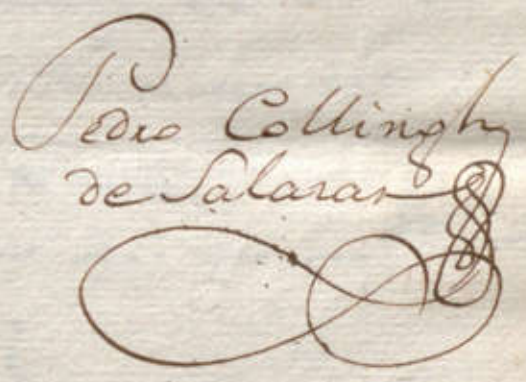 Pedro Collingh
de Salasar